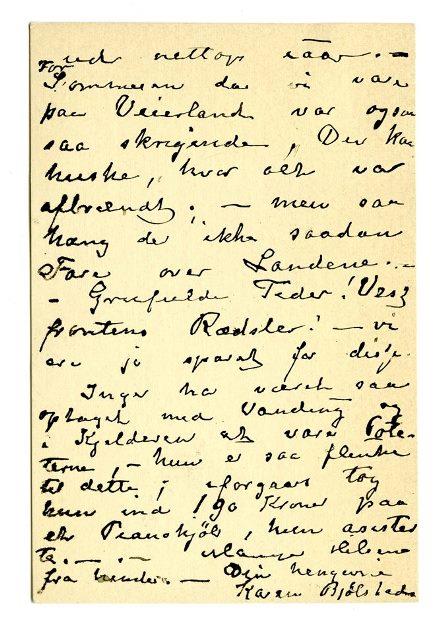 for ude nettop iaar. —
Sommeren da vi var
paa Veierland var ogsaa
saa skrigende, Du kan
huske, hvor alt var
afbrændt; — men saa
hang der ikke saadan
Fare over Landene. —
— Grufulde Tider! Vest
frontens Rædsler! — vi
ere jo sparet for disse.
Inger har været saa
optaget med Vanding og
i Kjelderen at vare Pote-
terne, — hun er saa flinke
til dette; iforgaars tog
hun ind 190 Kroner paa
et Pianohjølt, hun asister
te. — . — Mange Hilsner
fra hende. — Din hengivne
Karen Bjølstad